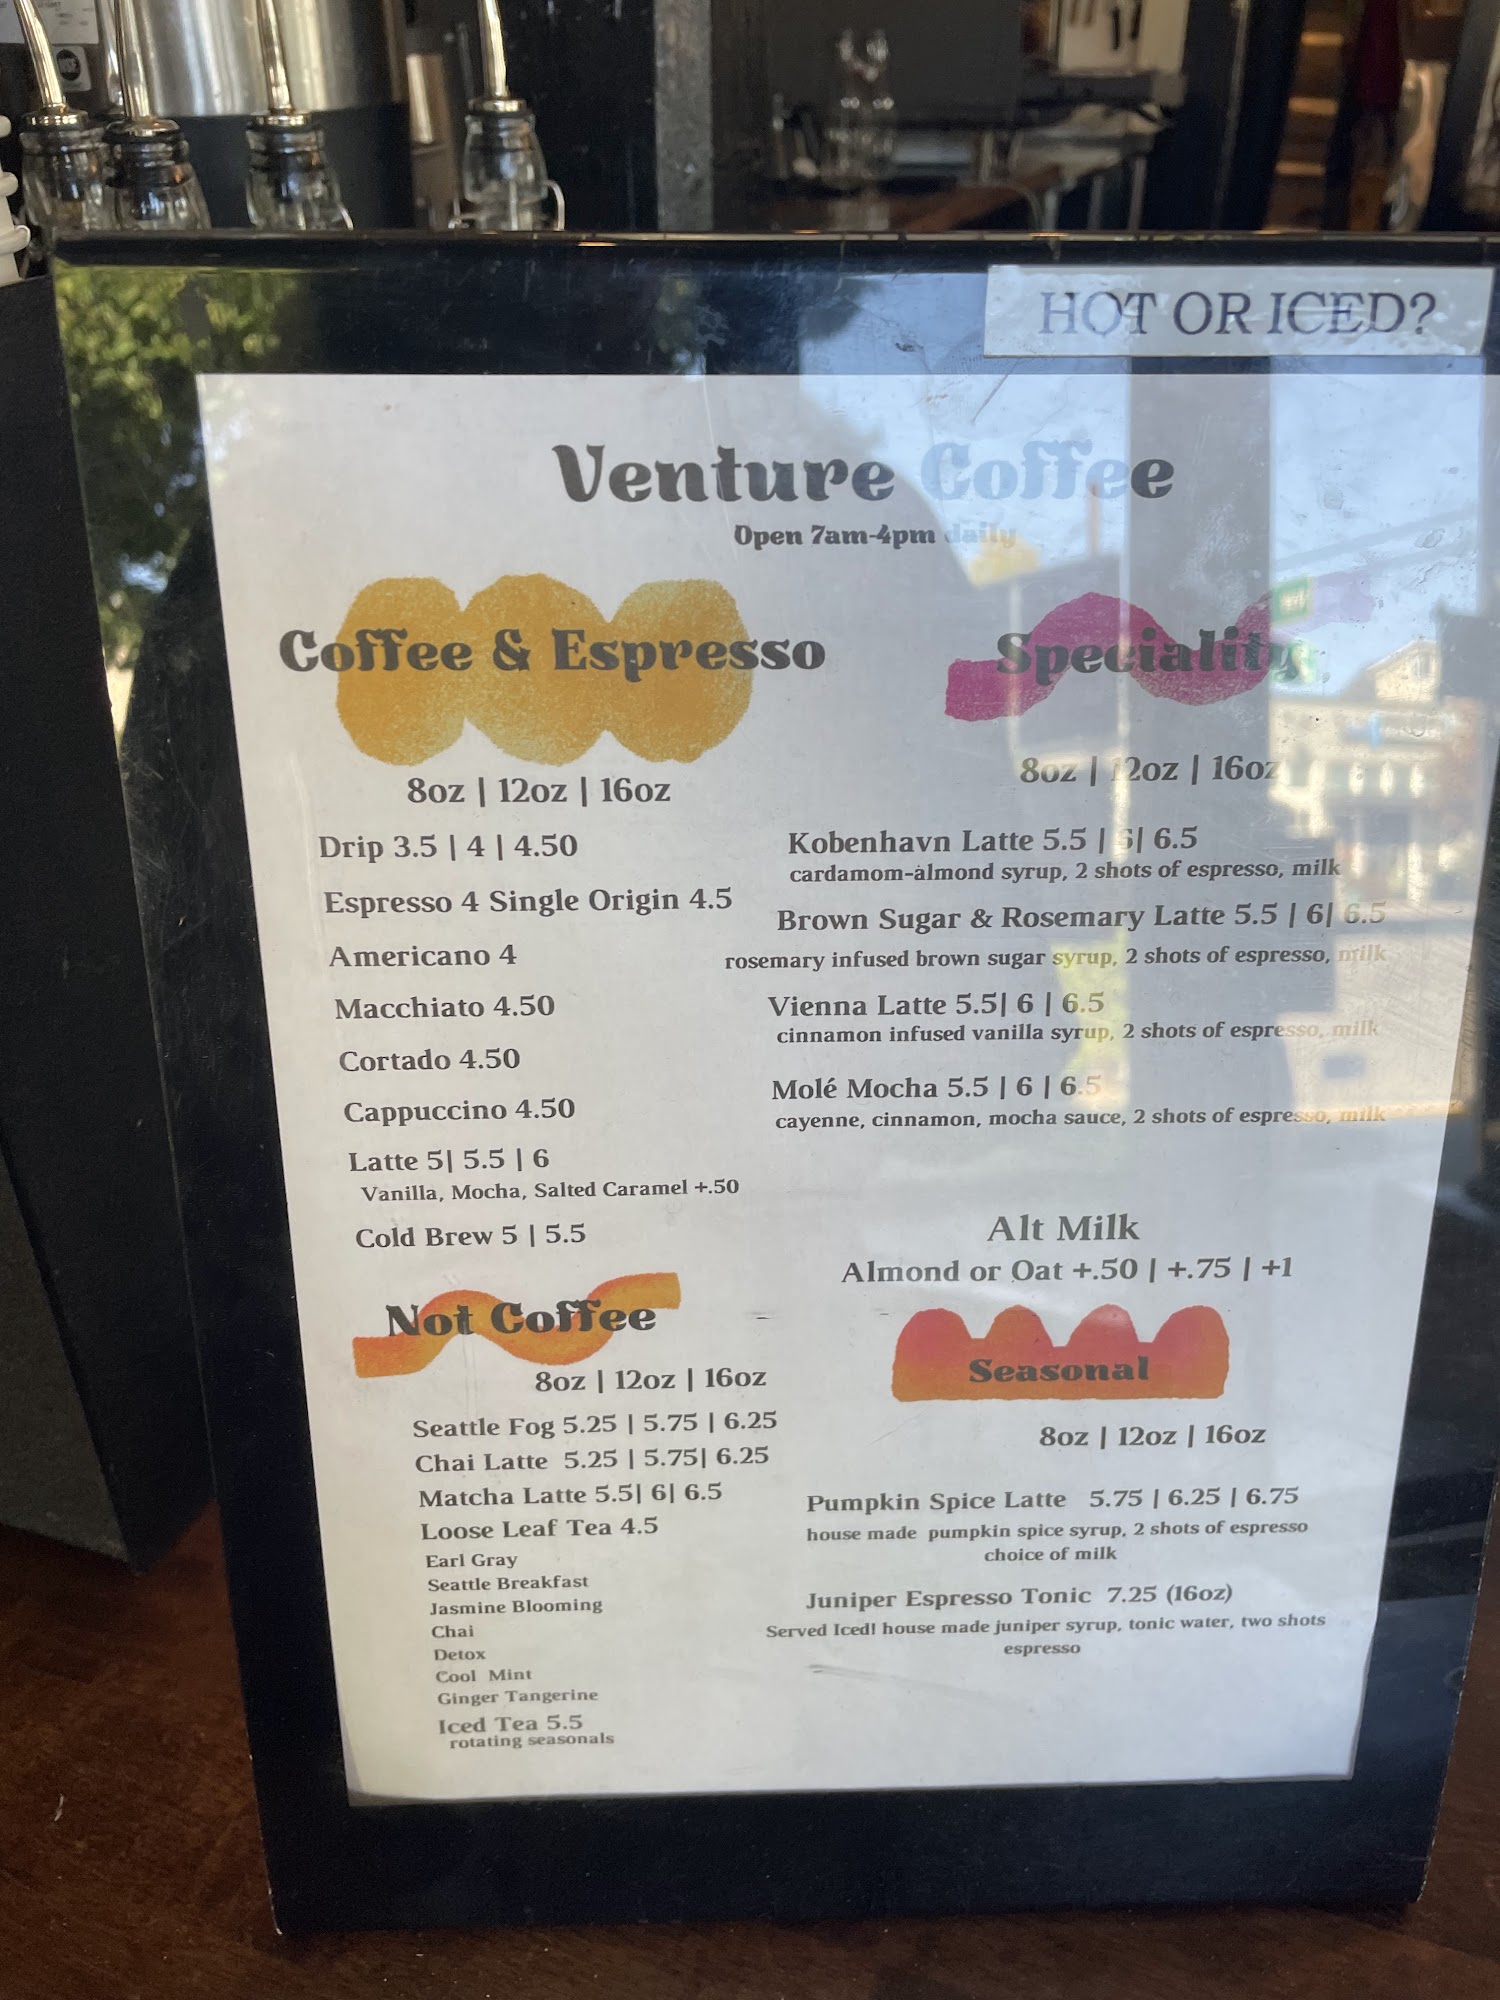 HOT OR ICED?
Venture Coffee
Open 7am-4pm daily
Coffee & Espresso
8oz | 12oz | 16oz
Drip 3.5 | 4 | 4.50
Espresso 4 Single Origin 4.5
Americano 4
Macchiato 4.50
Cortado 4.50
Cappuccino 4.50
Latte 5| 5.5 | 6
Vanilla, Mocha, Salted Caramel +.50
Cold Brew 5 | 5.5
Not Coffee
8oz | 12oz | 16oz
Seattle Fog 5.25 | 5.75 | 6.25
Chai Latte 5.25 | 5.75| 6.25
Matcha Latte 5.5| 6| 6.5
Loose Leaf Tea 4.5
Earl Gray
Seattle Breakfast
Jasmine Blooming
Chai
Detox
Cool Mint
Ginger Tangerine
Iced Tea 5.5
rotating seasonals
Speciality
8oz | 12oz | 16oz
Kobenhavn Latte 5.5 | 6| 6.5
cardamom-almond syrup, 2 shots of espresso, milk
Brown Sugar & Rosemary Latte 5.5 | 6| 6.5
rosemary infused brown sugar syrup, 2 shots of espresso, milk
Vienna Latte 5.5| 6 | 6.5
cinnamon infused vanilla syrup, 2 shots of espresso, milk
Molé Mocha 5.5 | 6 | 6.5
cayenne, cinnamon, mocha sauce, 2 shots of espresso, milk
Alt Milk
Almond or Oat +.50 | +.75 | +1
Seasonal
8oz | 12oz | 16oz
Pumpkin Spice Latte 5.75 | 6.25 | 6.75
house made pumpkin spice syrup, 2 shots of espresso
choice of milk
Juniper Espresso Tonic 7.25 (16oz)
Served Iced! house made juniper syrup, tonic water, two shots
espresso